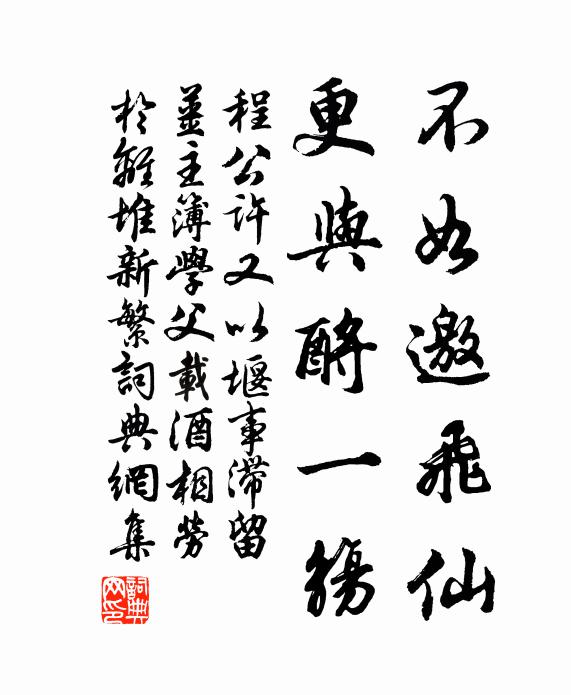 不如邀飛仙
更與酹一觴
程公許又以堰事滯留
薑主簿學父載酒相勞
於離堆新繁詞典網集
詞典網印